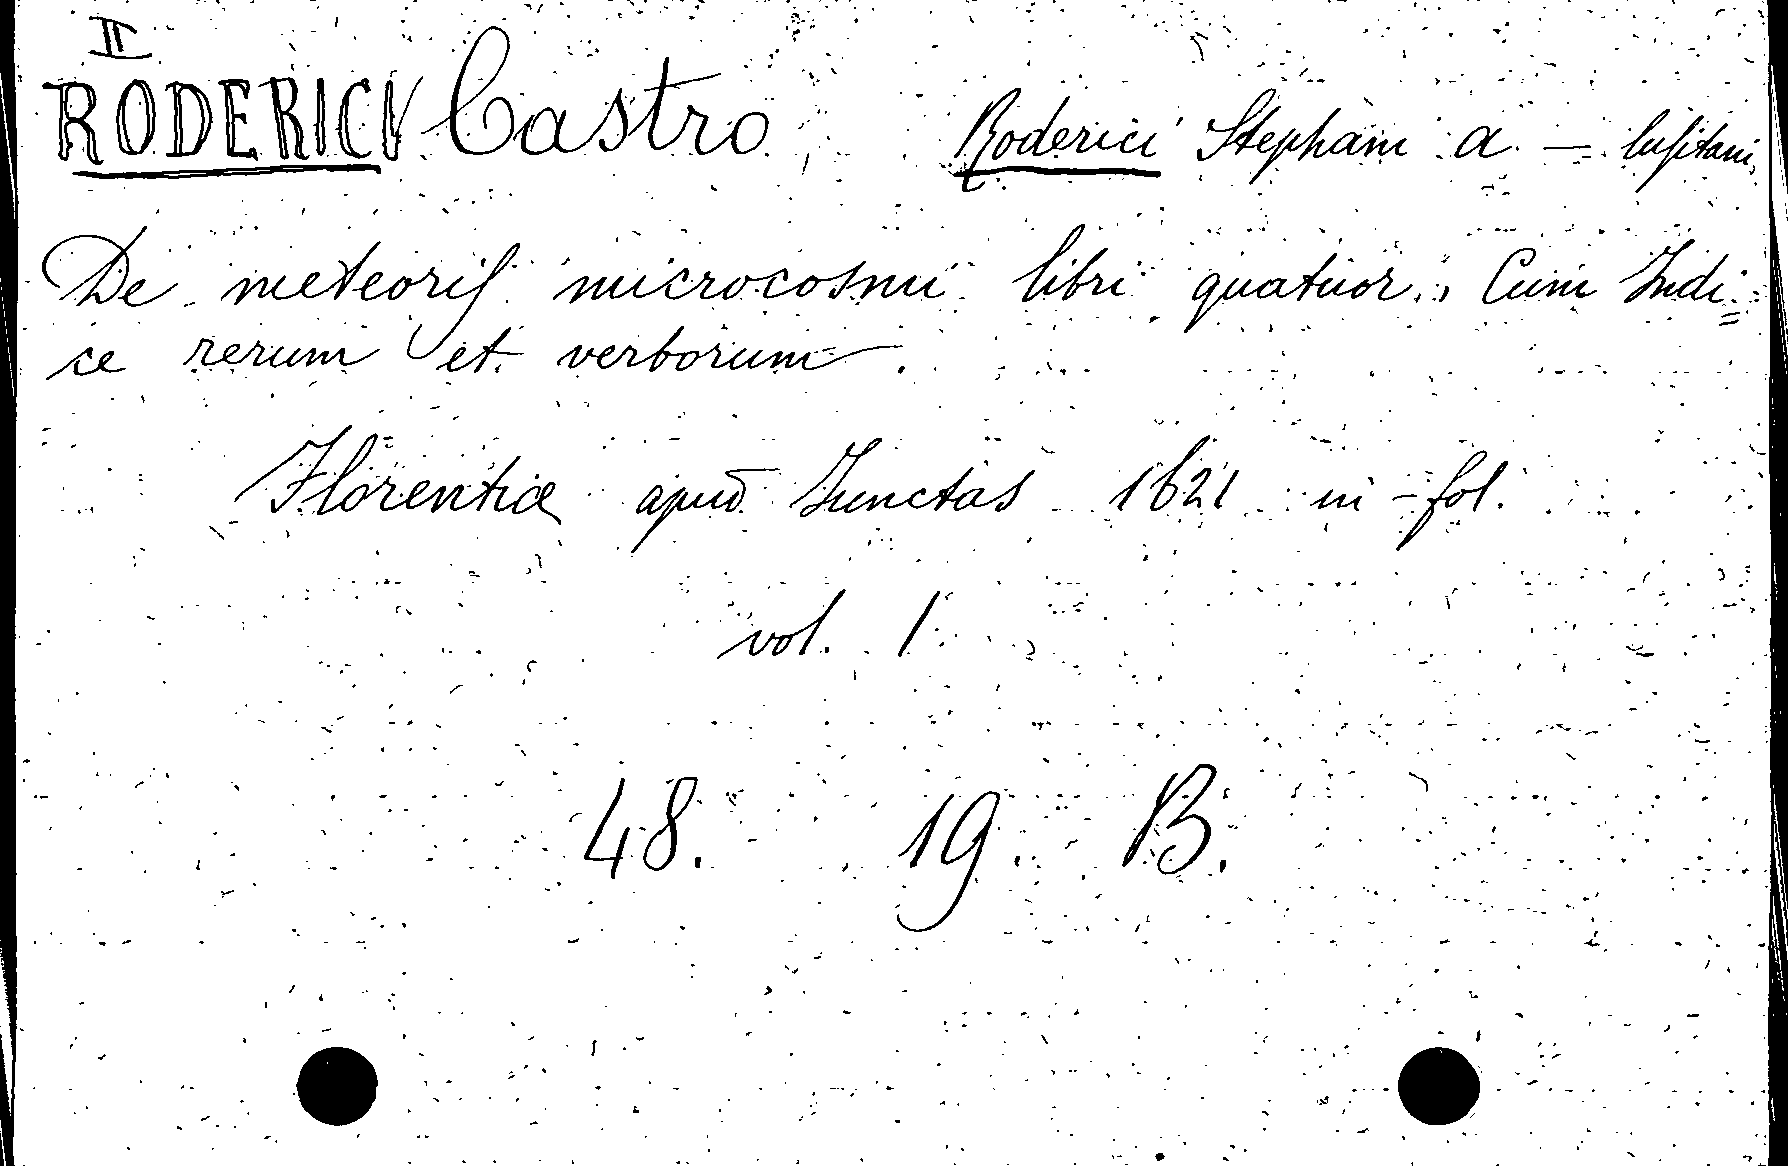 II
RODERICI Castro Roderici Stephani a — lusitani
De meteoris microcosmi libri quatuor. Cum Indi=
ce rerum et verborum.
Florentiæ apud Junctas 1621 in-fol.
vol. 1
48. 19. B.